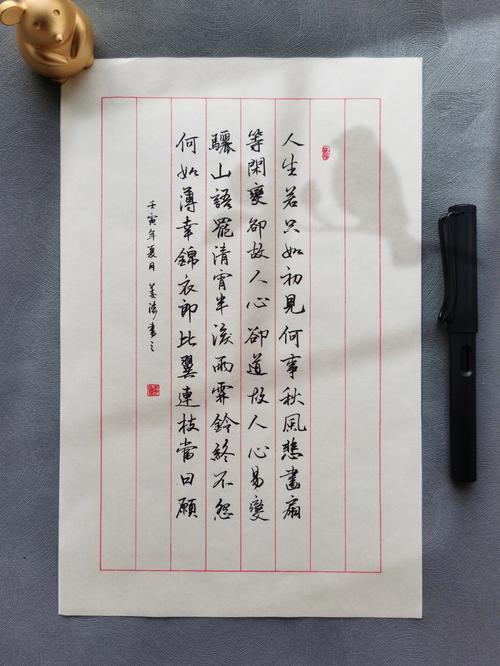 人生若只如初見何事秋風悲畫扇
等閑變卻故人心卻道故人心易變
驪山語罷清宵半淚雨霖鈴終不怨
何如薄幸錦衣郎比翼連枝當日願
壬寅年夏月 姜涛書之